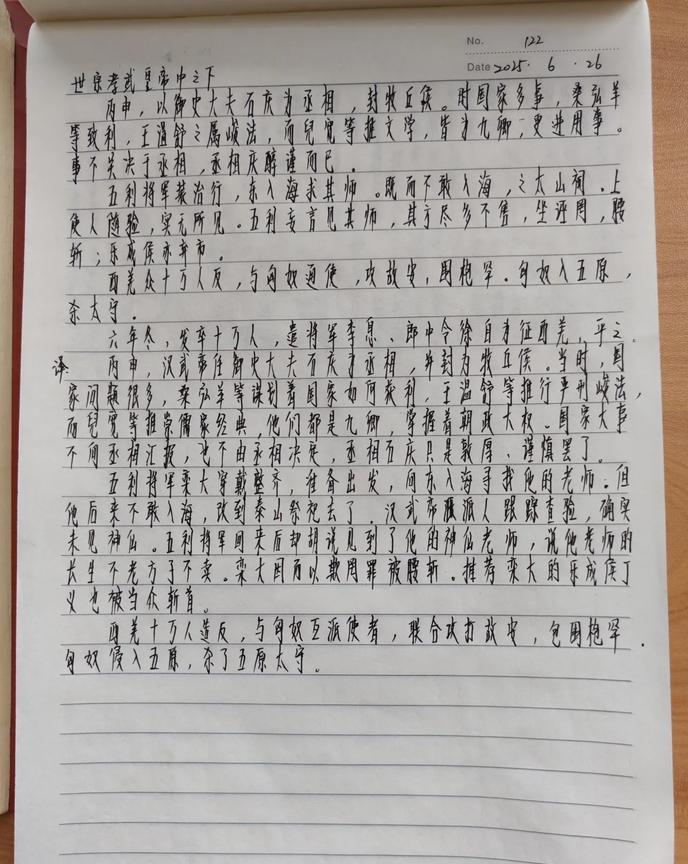 No. 122
Date 2025 . 6 . 26
世宗孝武皇帝中之下
丙申，以御史大夫石庆为丞相，封牧丘侯。时国家多事，桑弘羊
等致利，王温舒之属峻法，而兒宽等推文学，皆为九卿，更进用事。
事不关决于丞相，丞相庆醇谨而已。
五利将军装治行，东入海求其师。既而不敢入海，之太山祠。上
使人随验，实无所见。五利妄言见其师，其方尽多不售，坐诬罔，腰
斩；乐成侯亦弃市。
西羌众十万人反，与匈奴通使，攻故安，围枹罕。匈奴入五原，
杀太守。
六年冬，发卒十万人，遣将军李息、郎中令徐自为征西羌，平之。
译 丙申，汉武帝任御史大夫石庆为丞相，并封为牧丘侯。当时，国
家问题很多，桑弘羊等谋划着国家如何获利，王温舒等推行严刑峻法，
而兒宽等推崇儒家经典，他们都是九卿，掌握着朝政大权。国家大事
不向丞相汇报，也不由丞相决定，丞相石庆只是敦厚、谨慎罢了。
五利将军栾大穿戴整齐，准备出发，向东入海寻找他的老师。但
他后来不敢入海，改到泰山祭祀去了。汉武帝派人跟踪查验，确实
未见神仙。五利将军回来后却胡说见到了他的神仙老师，说他老师的
长生不老方子不卖。栾大因而以欺罔罪被腰斩。推荐栾大的乐成侯丁
义也被当众斩首。
西羌十万人造反，与匈奴互派使者，联合攻打故安，包围枹罕。
匈奴侵入五原，杀了五原太守。